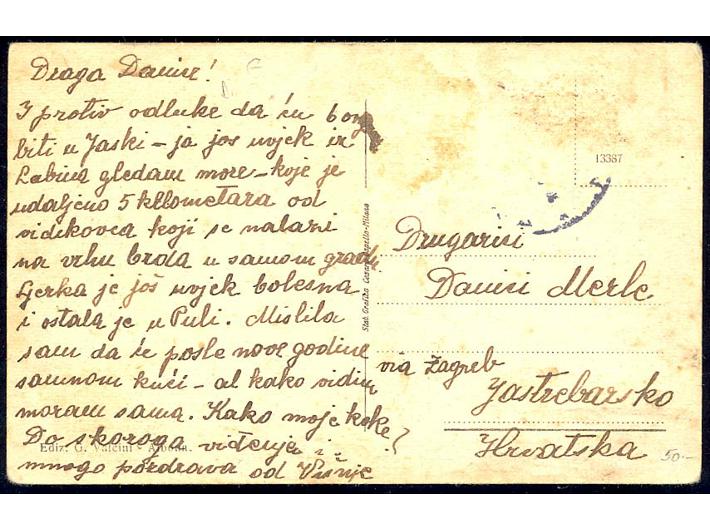 Draga Danice!
I protiv odluke da ću 6 ov
biti u Jaski - ja još uvjek iz
Labina gledam more - koje je
udaljeno 5 killometara od
vidikovca koji se nalazi
na vrhu brda u samom gradu
Cjerka je još uvjek bolesna
i ostala je u Puli. Mislila
sam da će posle nove godine
samnom kući - al kako vidim
moram sama. Kako moje koke?
Do skoroga viđenja i
mnogo pozdrava od Višnje
Ediz. G. Valcini - Albona.
Stab. Grafico Cesare Capello - Milano
13387
Drugarici
Danici Merlc
via Zagreb
Jastrebarsko
Hrvatska
50.-